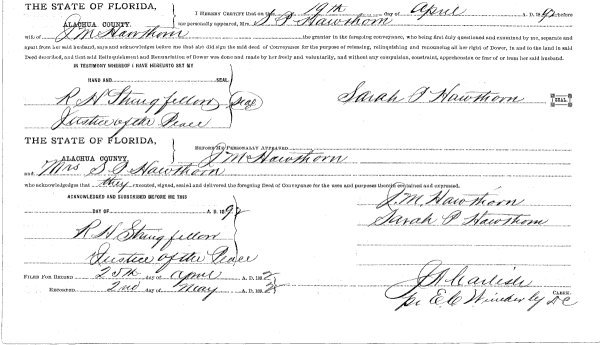 THE STATE OF FLORIDA,
ALACHUA COUNTY.
I HEREBY CERTIFY that on the 19th day of April A. D. 1892 before
me personally appeared, Mrs. S P Hawthorn
wife of J M Hawthorn the grantor in the foregoing conveyance, who being first duly questioned and examined by me, separate and
apart from her said husband, says and acknowledges before me that she did sign the said deed of Conveyance for the purpose of releasing, relinquishing and renouncing all her right of Dower, in and to the land in said
Deed described, and that said Relinquishment and Renunciation of Dower was done and made by her freely and voluntarily, and without any compulsion, constraint, apprehension or fear of or from her said husband.
IN TESTIMONY WHEREOF I HAVE HEREUNTO SET MY
HAND AND SEAL
R H Stringfellow Seal
Justice of the Peace
Sarah P Hawthorn SEAL.
THE STATE OF FLORIDA,
ALACHUA COUNTY.
BEFORE ME PERSONALLY APPEARED J M Hawthorn
and Mrs S P Hawthorn
who acknowledges that they executed, signed, sealed and delivered the foregoing Deed of Conveyance for the uses and purposes therein contained and expressed.
ACKNOWLEDGED AND SUBSCRIBED BEFORE ME THIS
DAY OF A. D. 1892
J. M. Hawthorn
Sarah P Hawthorn
R H Stringfellow
Justice of the Peace
FILED FOR RECORD 25th day of April A. D. 1892
RECORDED 2nd day of May A. D. 1892
J A Carlisle CLERK.
pr E C Wimberly D C